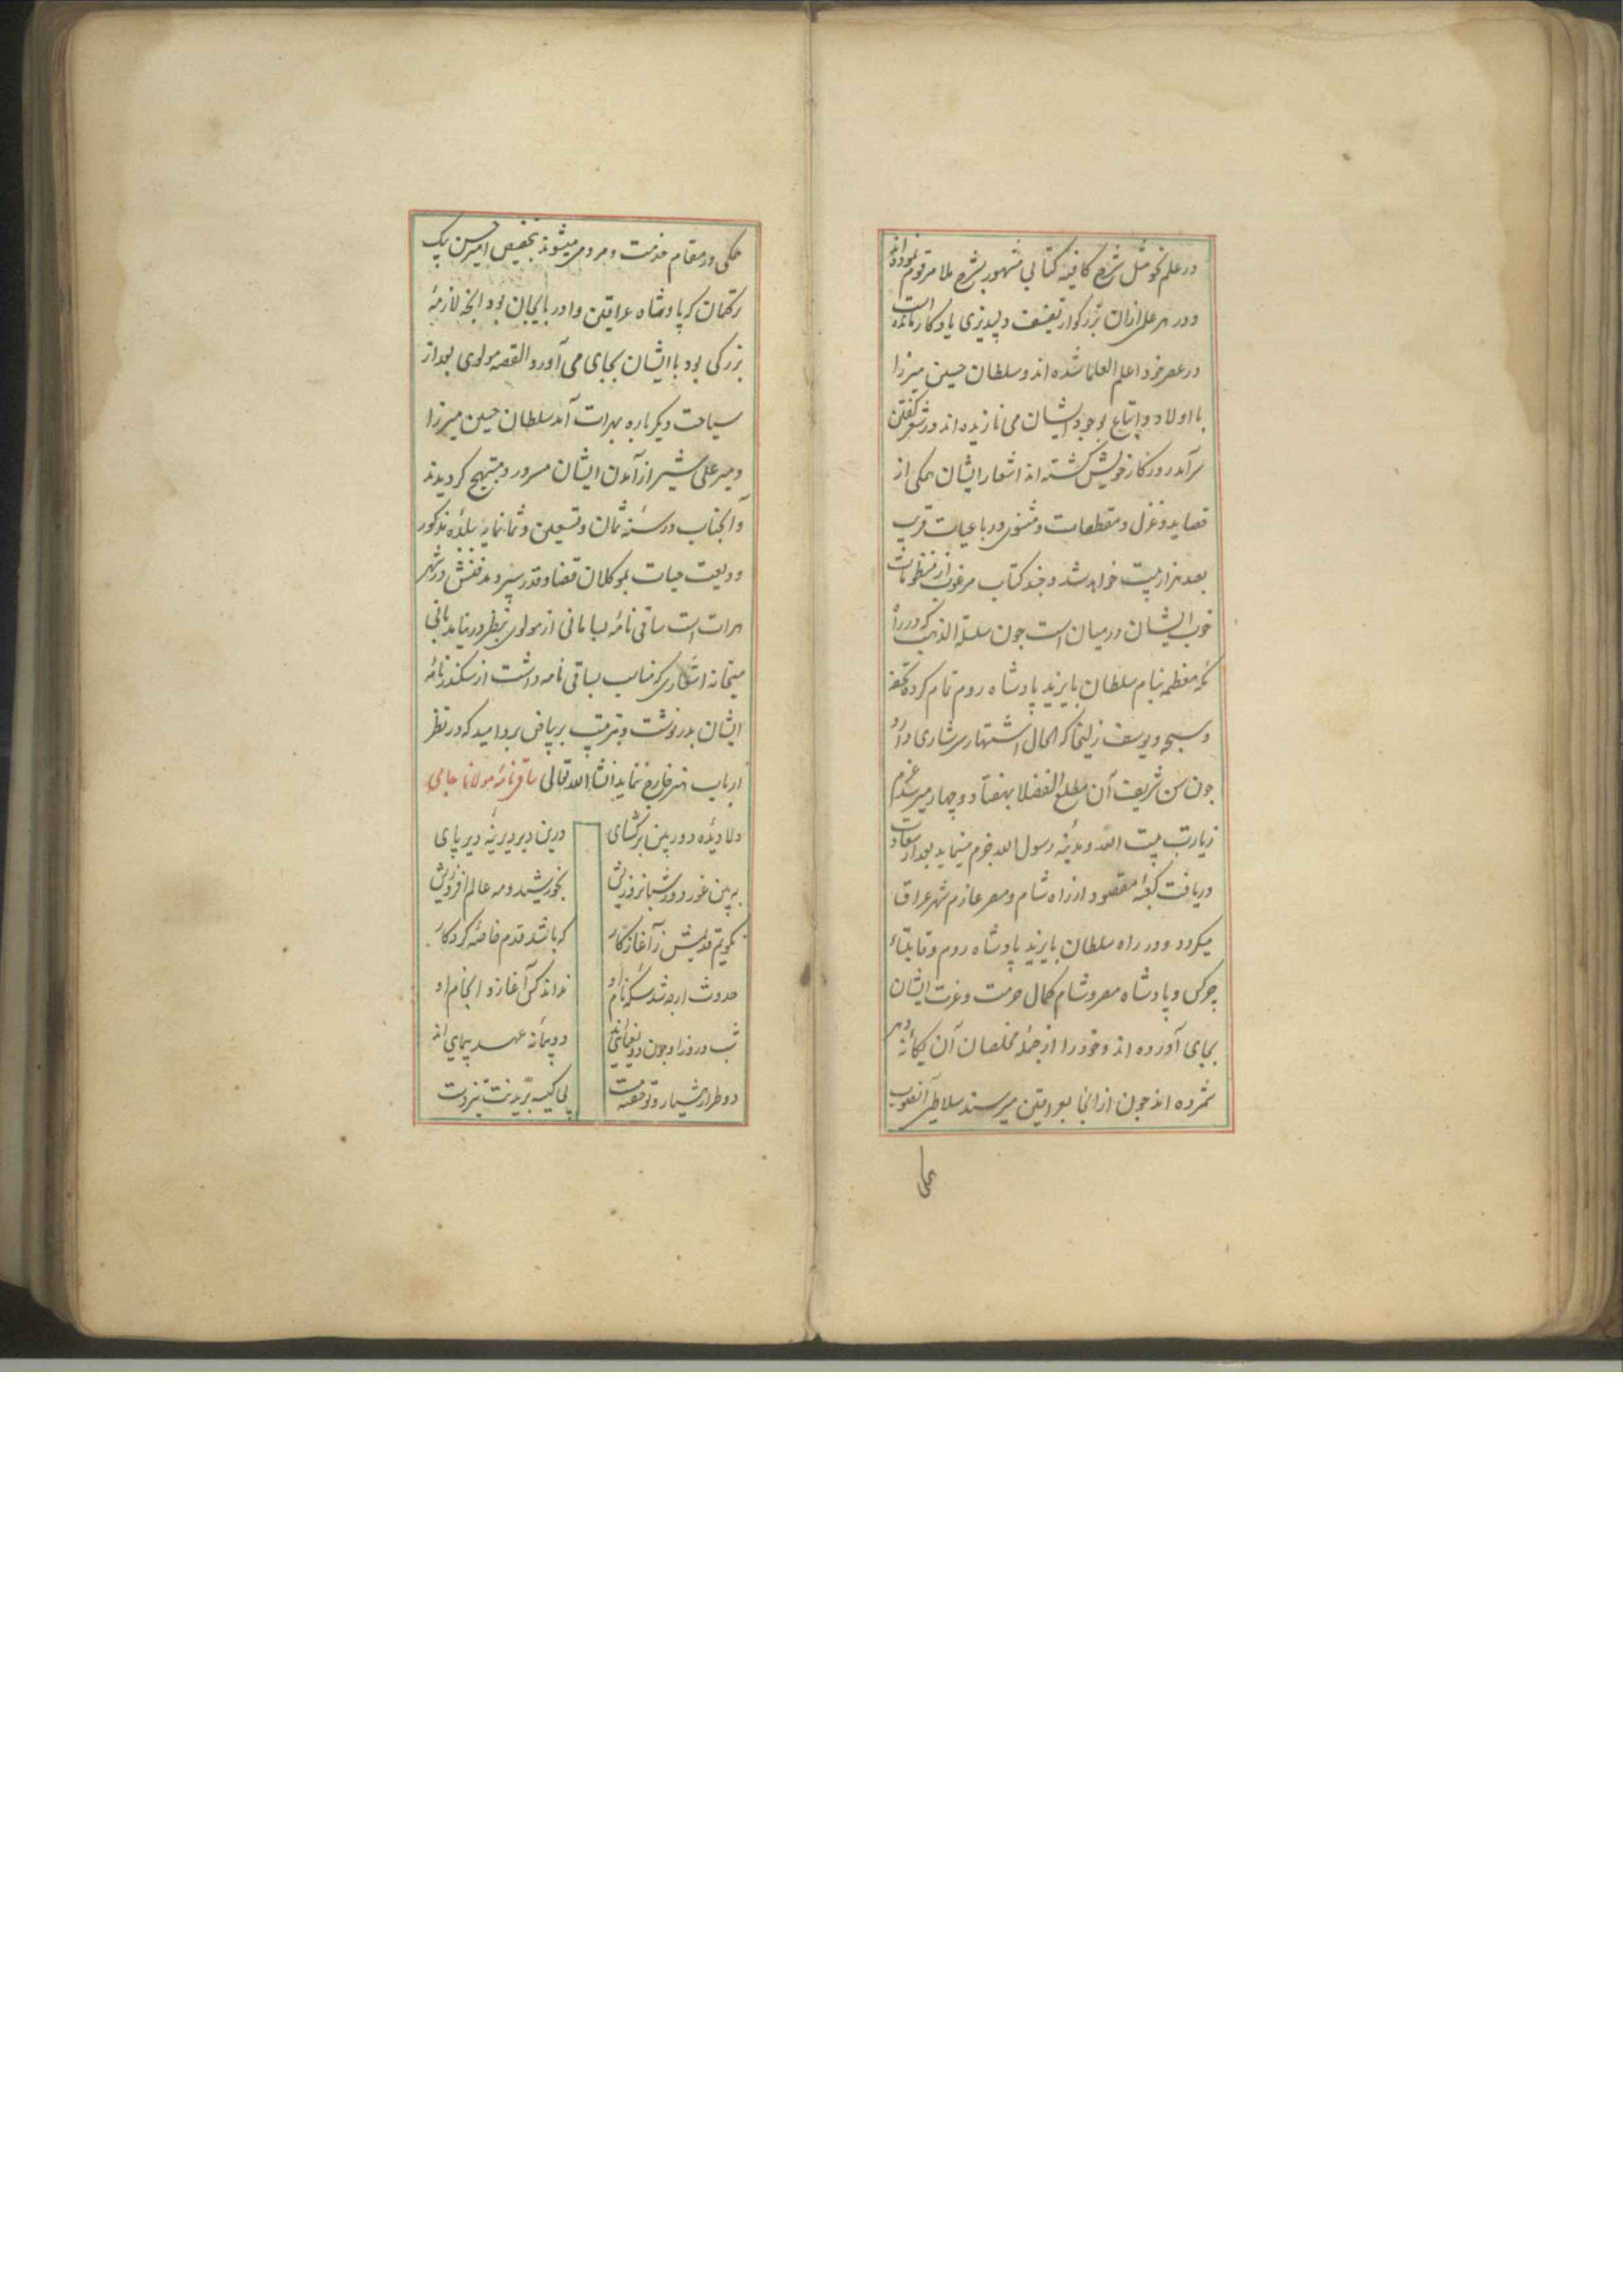 در علم نحو مثل شرح کافیه کتابی مشهور بشرح ملا مرقوم نموده‌اند
و در هر علمی ازان بزرکوار تصنیف دلپذیری یادکار مانده است
در عصر خود اعلم العلما شده اند و سلطان حسین میرزا
با اولاد و اتباع بوجود ایشان می نازیده اند و در شعر کفتن
سرآمد روزکار خویش کشته اند اشعار ایشان همکی از
قصاید و غزل و مقطعات و مثنوی و رباعیات قریب
بصد هزار بیت خواهد شد و چند کتاب مرغوب از منظومات
خوب ایشان در میان است چون سلسلة الذهب که در راه
مکه معظمه بنام سلطان بایزید پادشاه روم تمام کرده تحفه
و سبحه و یوسف زلیخا که الحال اشتهار سرشاری دارد
چون سن شریف آن مطلع الفضلا بهفتاد و چهار میرسد عزم
زیارت بیت الله و مدینه رسول الله جزم مینماید بعد از سعادت
دریافت کعبهٔ مقصود از راه شام و مصر عازم شهر عراق
میکردد و در راه سلطان بایزید پادشاه روم و قایتبای
چرکس و پادشاه مصر و شام کمال حرمت و عزت ایشان
بجای آورده اند و خود را از جملهٔ مخلصان آن یکانهٔ دهر
شمرده اند چون از انجا بعراقین میرسند سلاطین آنصوب
همکی
همکی در مقام خدمت و مردمی میشوند بتخصیص امیر حسن بیک
ترکمان که پادشاه عراقین و اذربایجان بود انجه لازمهٔ
بزرکی بود با ایشان بجای می آورد القصه مولوی بعد از
سیاحت دیکر باره بهرات آمد سلطان حسین میرزا
و میر علی شیر از آمدن ایشان مسرور و مبتهج کردیدند
و آنجناب در سنهٔ ثمان و تسعین و ثمانمایه ببلدهٔ مذکور
ودیعت حیات بموکلان قضا و قدر سپرد مدفنش در شهر
هرات است ساقی نامهٔ بسامانی از مولوی بنظر در نیامد بانی
میخانه اشعاری که مناسب بساقی نامه داشت از سکندرنامهٔ
ایشان بدر نوشت و بترتیب بر بیاض برد امید که در نظر
ارباب هنر خارج ننماید انشاء الله تعالی ساقی نامهٔ مولانا جامی
دلا دیدهٔ دوربین برکشای درین دیر دیرینهٔ دیرپای
به بین غور دور شبانروزیش بخورشید و مه عالم افروزیش
نکویم قدیمش ز آغاز کار که باشد قدم خاصهٔ کردکار
حدوث ارچه شد سکهٔ نام او نداند کس آغاز و انجام او
شب و روز او چون دو یغمایی اند دو پیمانهٔ عهد پیمای اند
دو طرار هشیار و تو خفته مست پی کیسه برّیدنت تیزدست